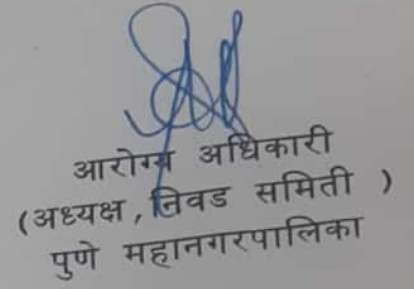 आरोग्य अधिकारी
(अध्यक्ष, निवड समिती )
पुणे महानगरपालिका